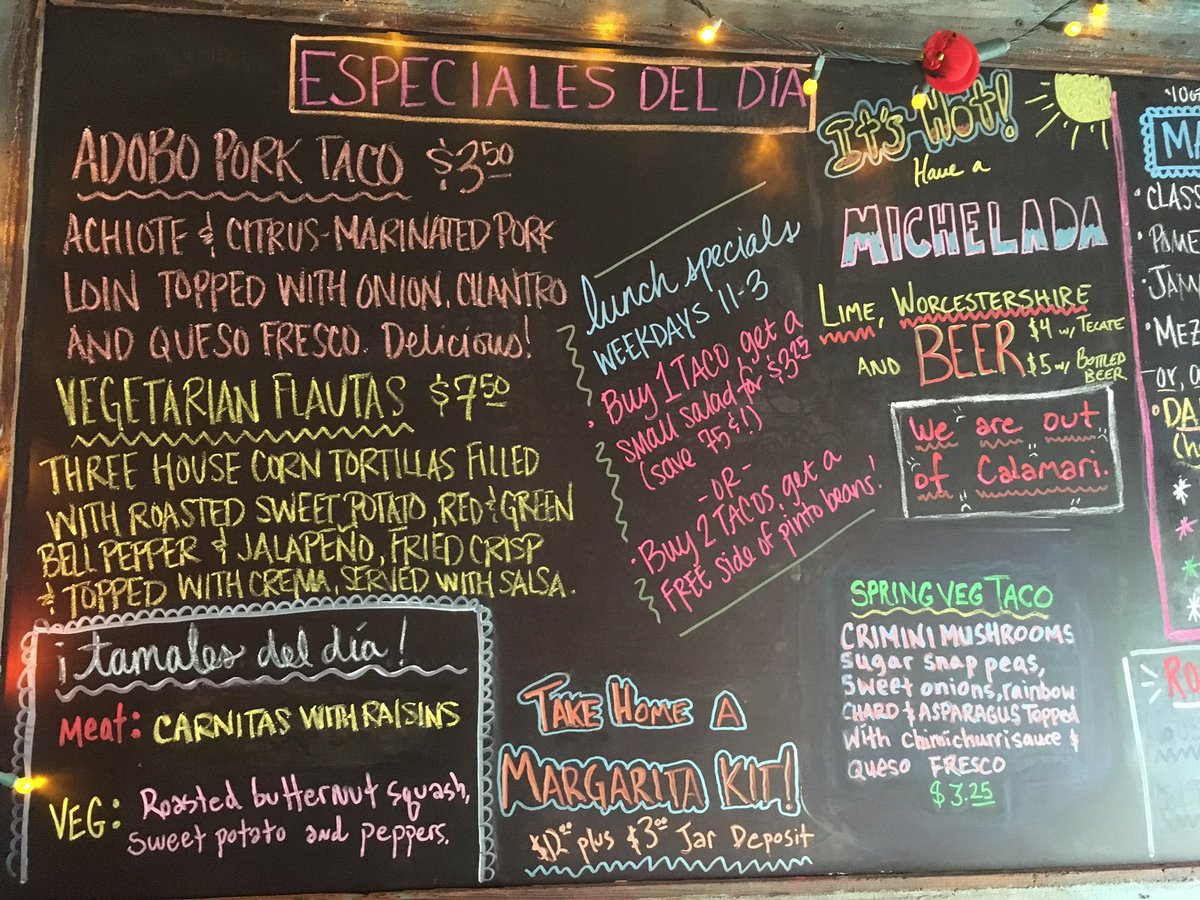 ESPECIALES DEL DÍA
ADOBO PORK TACO $3.50
ACHIOTE & CITRUS-MARINATED PORK
LOIN TOPPED WITH ONION, CILANTRO
AND QUESO FRESCO. Delicious!
VEGETARIAN FLAUTAS $7.50
THREE HOUSE CORN TORTILLAS FILLED
WITH ROASTED SWEET POTATO, RED & GREEN
BELL PEPPER & JALAPEÑO, FRIED CRISP
& TOPPED WITH CREMA, SERVED WITH SALSA.
¡tamales del día!
Meat: CARNITAS WITH RAISINS
VEG: Roasted butternut squash,
sweet potato and peppers.
lunch specials
WEEKDAYS 11-3
• Buy 1 TACO, get a
small salad for $3.25
(save 75¢!)
-OR-
• Buy 2 TACOS, get a
FREE side of pinto beans!
TAKE HOME A
MARGARITA KIT!
$12.00 plus $3.00 Jar Deposit
It's Hot!
Have a
MICHELADA
LIME, WORCESTERSHIRE
AND BEER $4 w/ TECATE
$5 w/ BOTTLED
BEER
We are out
of Calamari.
SPRING VEG TACO
CRIMINI MUSHROOMS
sugar snap peas,
sweet onions, rainbow
CHARD & ASPARAGUS TOPPED
with chimichurri sauce &
QUESO FRESCO
$3.25
MA
• CLASS
• POME
• JAMA
• MEZ
or, a
• DA
(h
RO